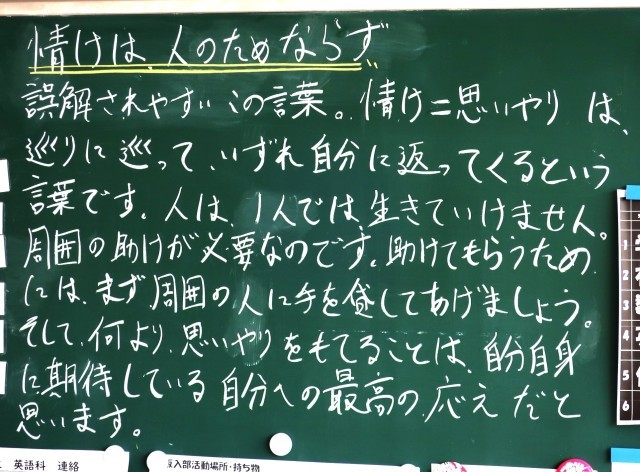 情けは、人のためならず
誤解されやすいこの言葉。情け=思いやり は、
巡りに巡って、いずれ自分に返ってくるという
言葉です。人は、1人では生きていけません。
周囲の助けが必要なのです。助けてもらうため
には、まず周囲の人に手を貸してあげましょう。
そして、何より、思いやりをもてることは、自分自身
に期待している自分への最高の応えだと
思います。
英語科 連絡
仮入部活動場所・持ち物
1
2
3
4
5
6